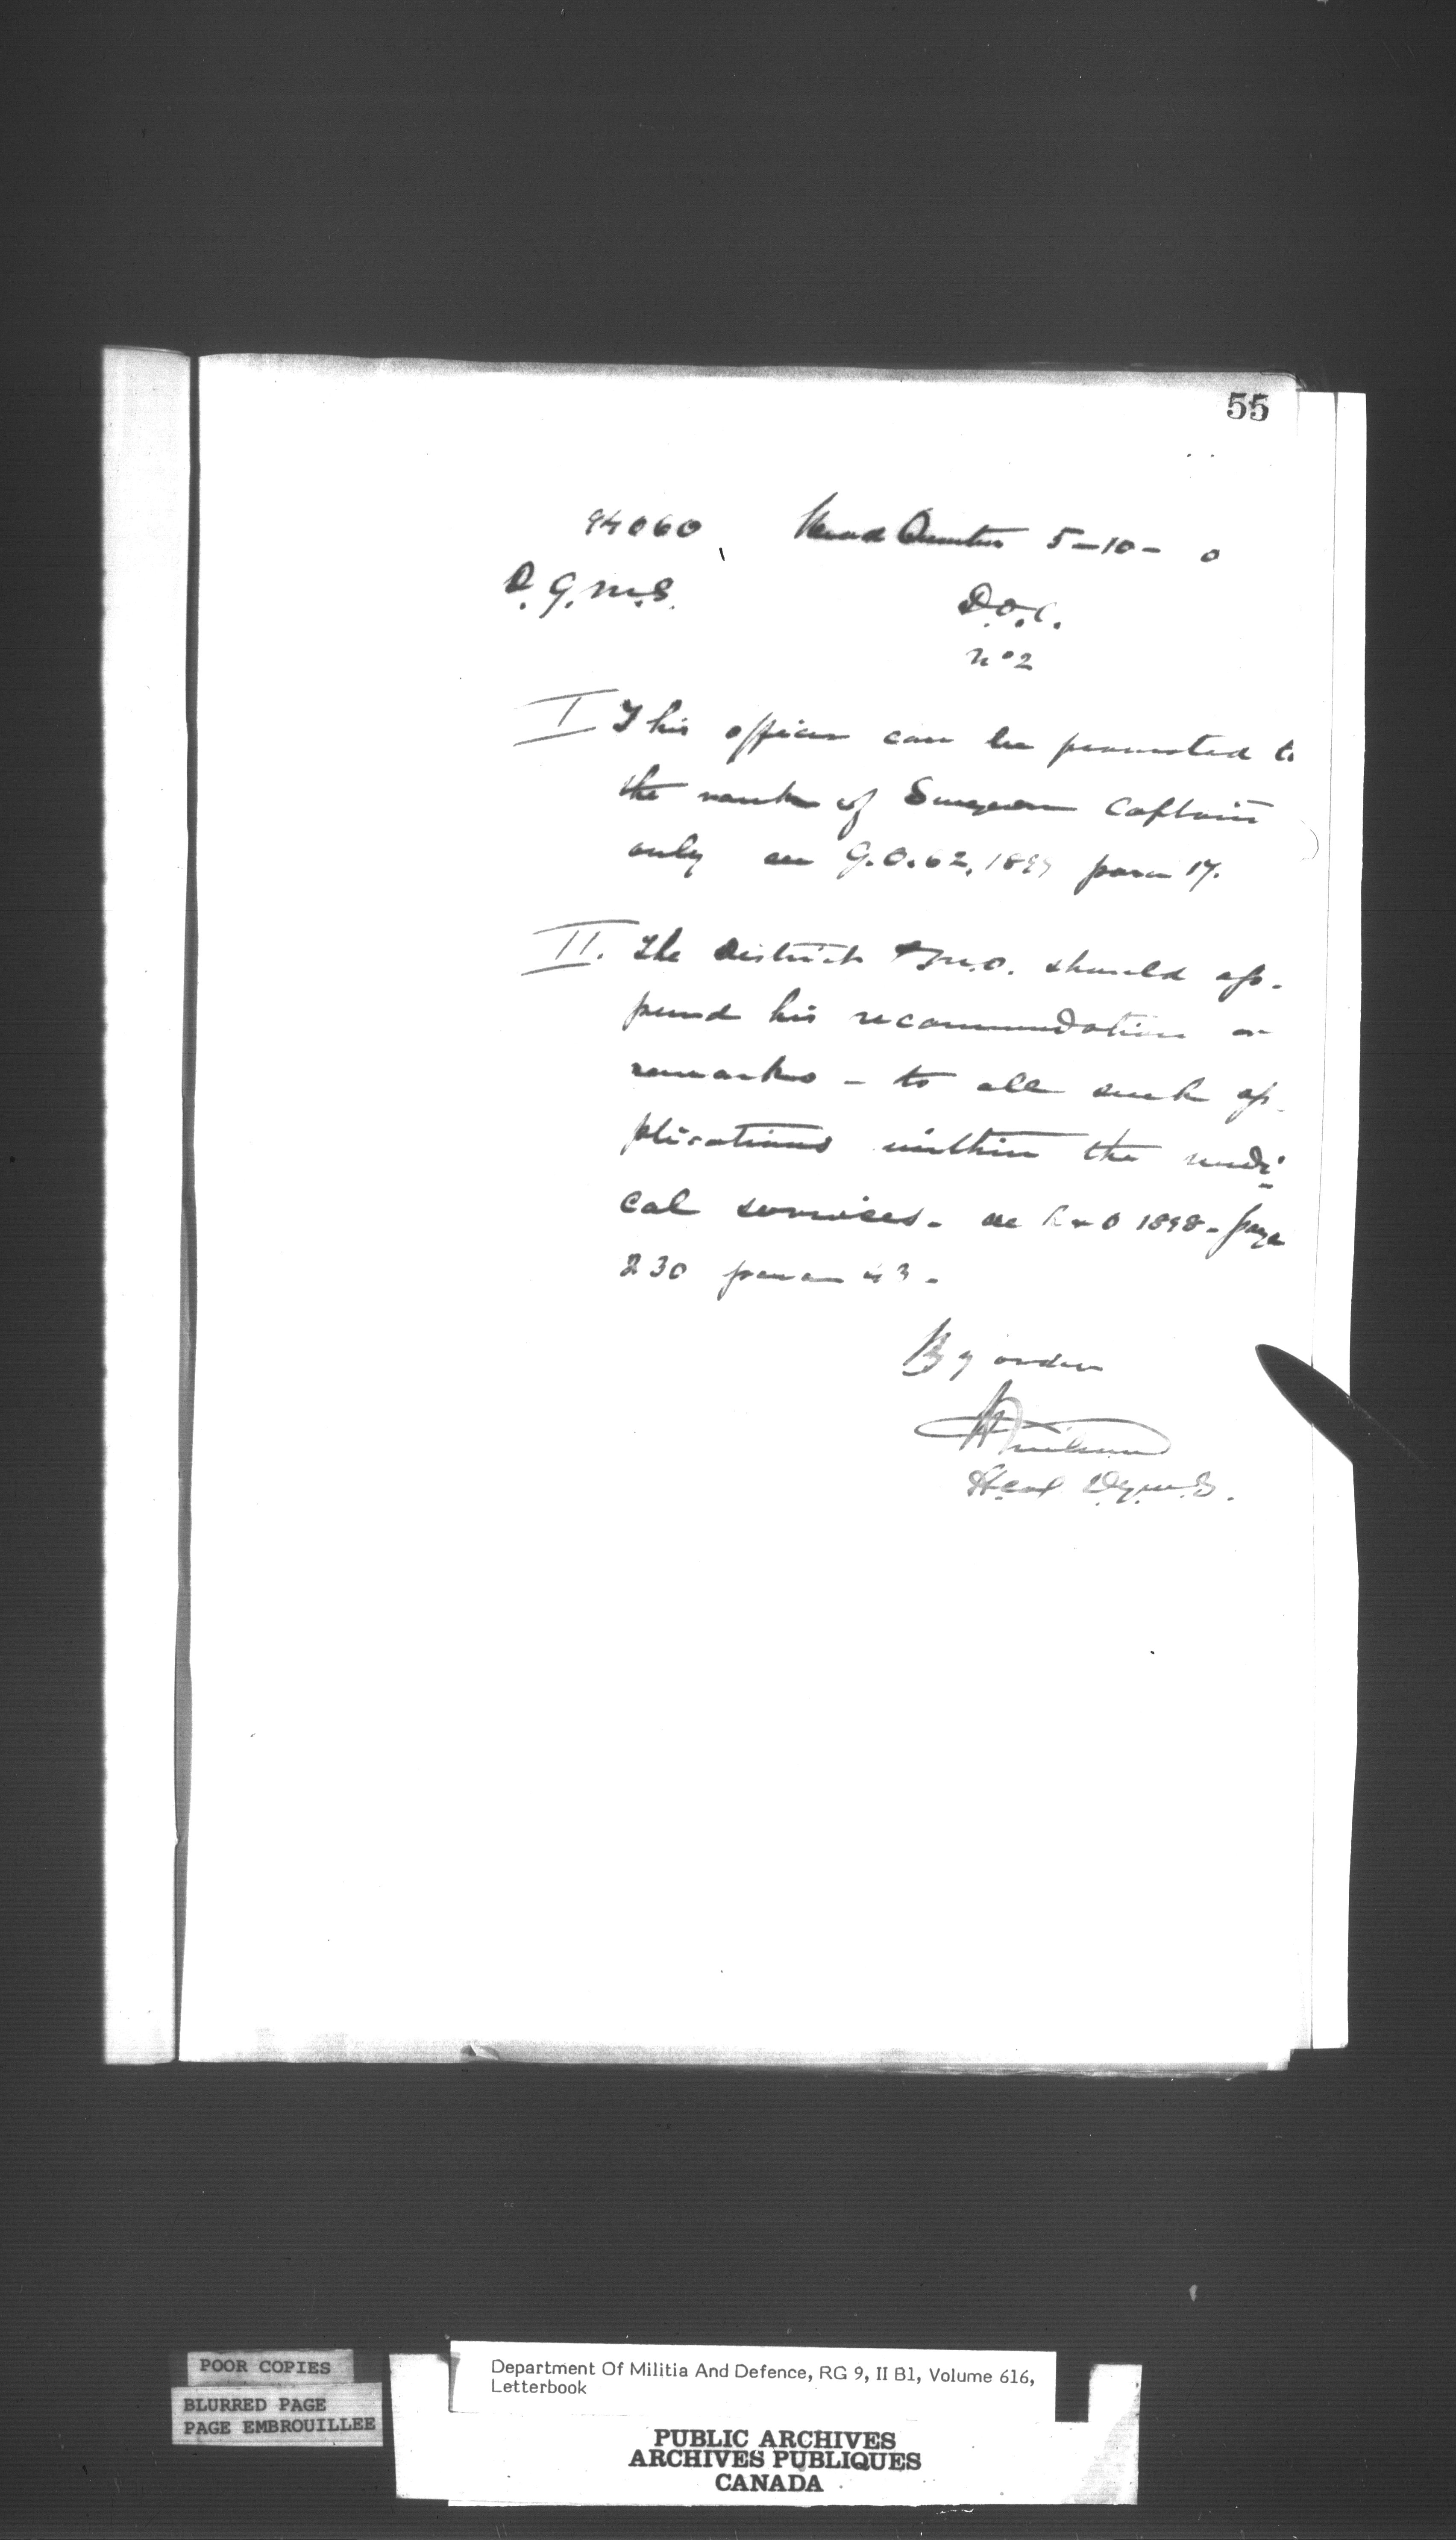 55
94060 Head Quarters 5-10- 0
D.G.M.S. D.O.C.
No 2
I This officer can be promoted to
the rank of Surgeon Captain
only see G.O. 62, 1899 para 17.
II. The District M.O. should ap-
pend his recommendation or
remarks - to all such ap-
plications within the medi-
cal services. see R & O 1898 - page
230 para 43 -
By order
DGMS.
POOR COPIES
BLURRED PAGE
PAGE EMBROUILLEE
Department Of Militia And Defence, RG 9, II B1, Volume 616,
Letterbook
PUBLIC ARCHIVES
ARCHIVES PUBLIQUES
CANADA